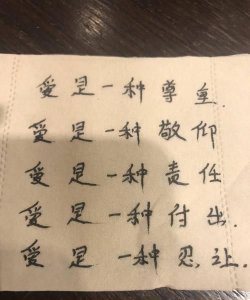 愛是一种尊重.
愛是一种敬仰
愛是一种责任
愛是一种付出.
愛是一种忍让.